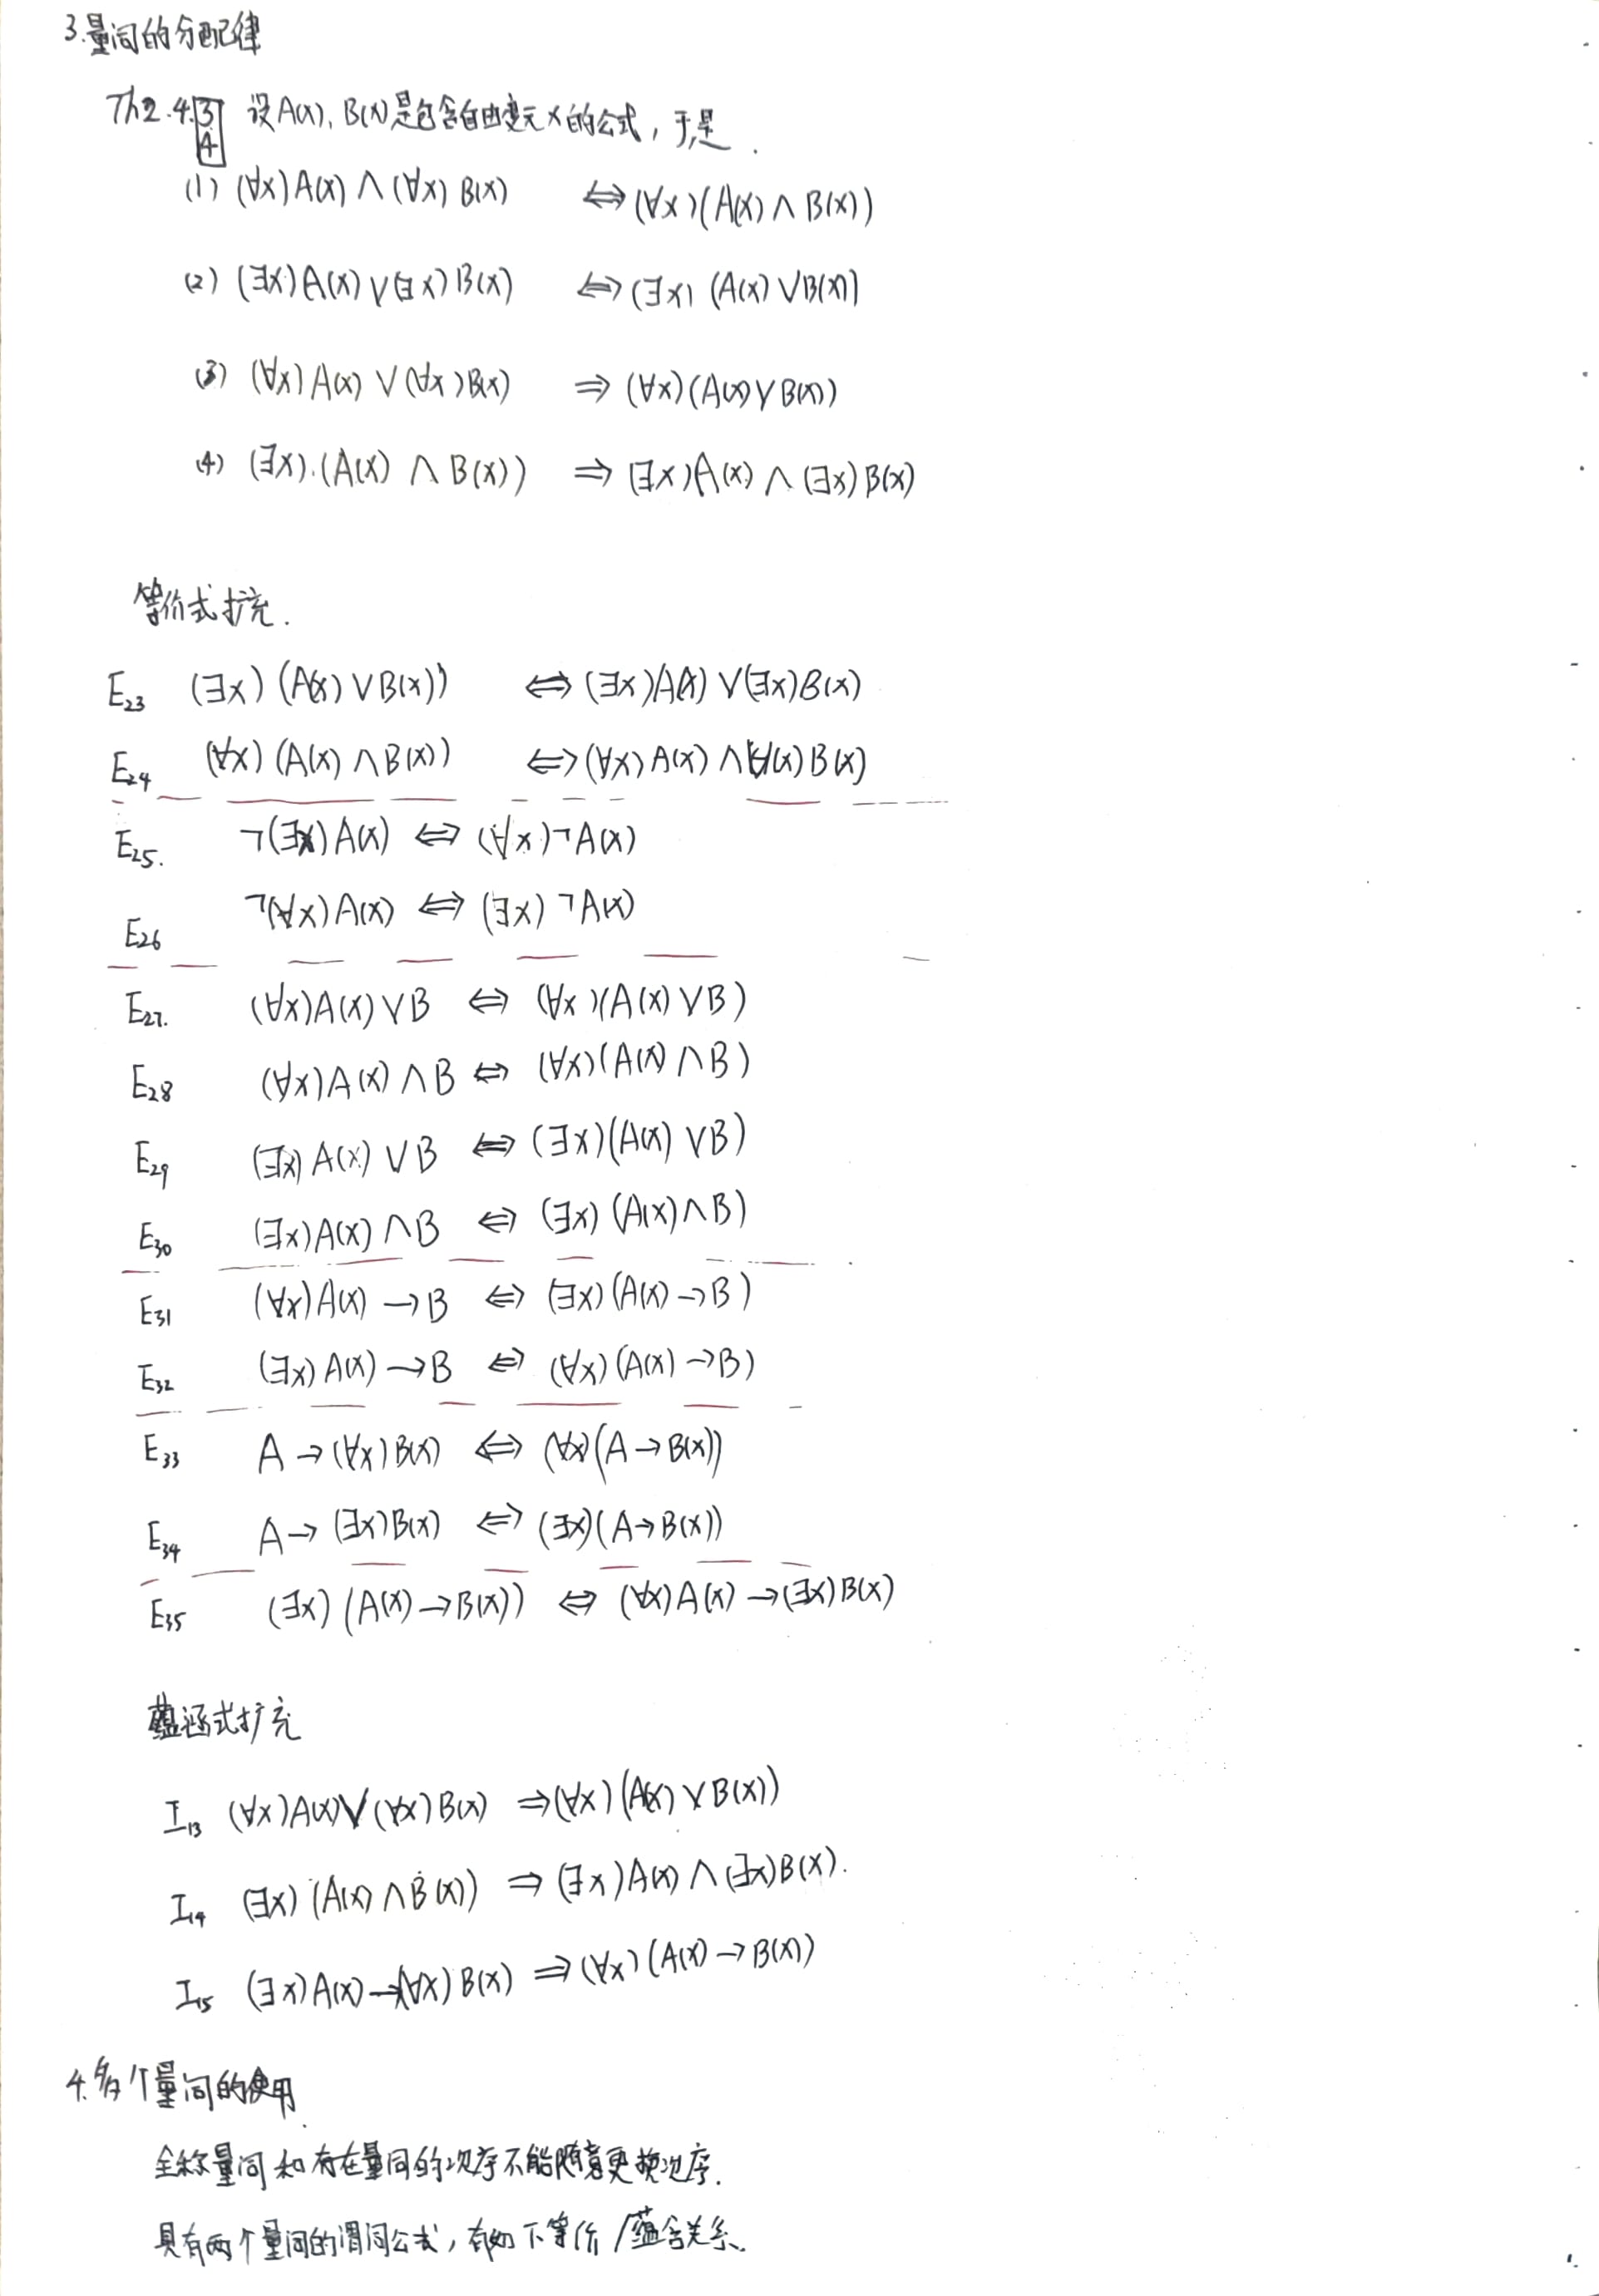 3.量词的分配律
Th2.4.3 设A(x), B(x)是包含自由变元x的公式, 于是.
4
(1) (∀x)A(x) ∧ (∀x)B(x) ⇔ (∀x)(A(x) ∧ B(x))
(2) (∃x)A(x) ∨ (∃x)B(x) ⇔ (∃x) (A(x) ∨ B(x))
(3) (∀x)A(x) ∨ (∀x)B(x) ⇒ (∀x)(A(x) ∨ B(x))
(4) (∃x).(A(x) ∧ B(x)) ⇒ (∃x)A(x) ∧ (∃x)B(x)
等价式扩充.
E23 (∃x) (A(x) ∨ B(x)) ⇔ (∃x)A(x) ∨ (∃x)B(x)
E24 (∀x) (A(x) ∧ B(x)) ⇔ (∀x)A(x) ∧ (∀x)B(x)
E25. ¬(∃x)A(x) ⇔ (∀x)¬A(x)
E26 ¬(∀x)A(x) ⇔ (∃x)¬A(x)
E27. (∀x)A(x) ∨ B ⇔ (∀x)(A(x) ∨ B)
E28 (∀x)A(x) ∧ B ⇔ (∀x)(A(x) ∧ B)
E29 (∃x)A(x) ∨ B ⇔ (∃x)(A(x) ∨ B)
E30 (∃x)A(x) ∧ B ⇔ (∃x)(A(x) ∧ B)
E31 (∀x)A(x) → B ⇔ (∃x)(A(x) → B)
E32 (∃x)A(x) → B ⇔ (∀x)(A(x) → B)
E33 A → (∀x)B(x) ⇔ (∀x)(A → B(x))
E34 A → (∃x)B(x) ⇔ (∃x)(A → B(x))
E35 (∃x)(A(x) → B(x)) ⇔ (∀x)A(x) → (∃x)B(x)
蕴涵式扩充
I13 (∀x)A(x) ∨ (∀x)B(x) ⇒ (∀x)(A(x) ∨ B(x))
I14 (∃x)(A(x) ∧ B(x)) ⇒ (∃x)A(x) ∧ (∃x)B(x).
I15 (∃x)A(x) → (∀x)B(x) ⇒ (∀x)(A(x) → B(x))
4.多个量词的使用
全称量词和存在量词的次序不能随意更换次序.
具有两个量词的谓词公式, 有如下等价/蕴含关系.